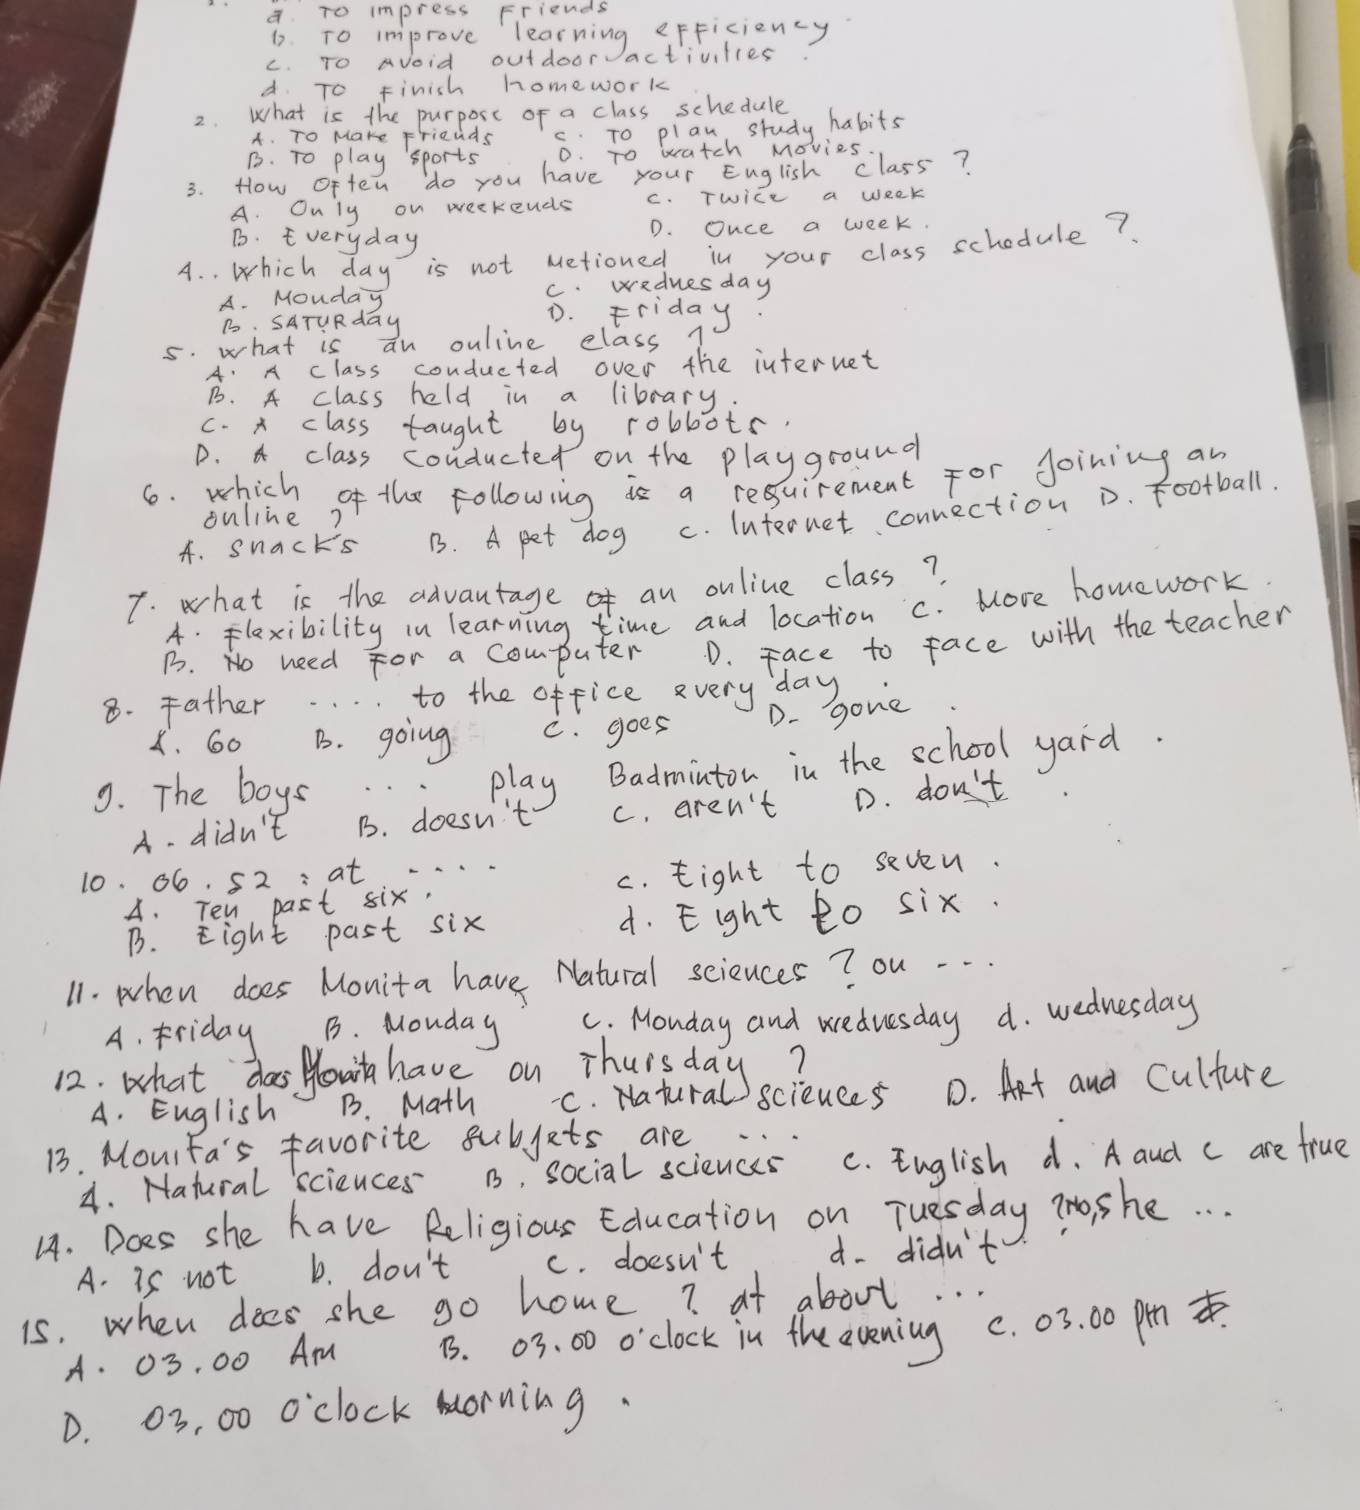 a. To impress Friends
b. To improve learning efficiency.
c. To Avoid outdoor activities.
d. To Finish homework
2. What is the purpose of a class schedule
A. To Make Friends C. To plan study habits
B. To play sports D. To watch Movies.
3. How often do you have your English class?
A. Only on weekends C. Twice a week
B. Everyday D. Once a week.
4.. Which day is not Metioned in your class schedule?
A. Monday C. Wednesday
B. SATURday D. Friday.
5. What is an online class?
A. A class conducted over the internet
B. A class held in a library.
C. A class taught by robbots.
D. A class conducted on the playground
6. Which of the Following is a requirement For Joining an
online?
A. snack's B. A pet dog C. Internet connection D. Football.
7. What is the advantage of an online class?
A. Flexibility in learning time and location C. More homework.
B. No need For a computer D. Face to Face with the teacher
8. Father .... to the office every day.
A. Go B. going C. goes D. gone.
9. The boys .... play Badminton in the school yard.
A. didn't B. doesn't C. aren't D. don't.
10. 06.52 : at ....
A. Ten past six. C. Eight to seven.
B. Eight past six d. Eight to six.
11. When does Monita have Natural sciences? on ---.
A. Friday B. Monday C. Monday and wednesday d. wednesday
12. What does Monita have on Thursday?
A. English B. Math C. Natural sciences D. Art and Culture
13. Monita's favorite subjets are ....
A. Natural sciences B. social sciences C. English d. A and C are true
14. Does she have Religious Education on Tuesday? No, she ...
A. is not b. don't C. doesn't d. didn't.
15. When does she go home? at about ...
A. 03.00 AM B. 03.00 o'clock in the evening C. 03.00 pm
D. 03.00 o'clock morning.